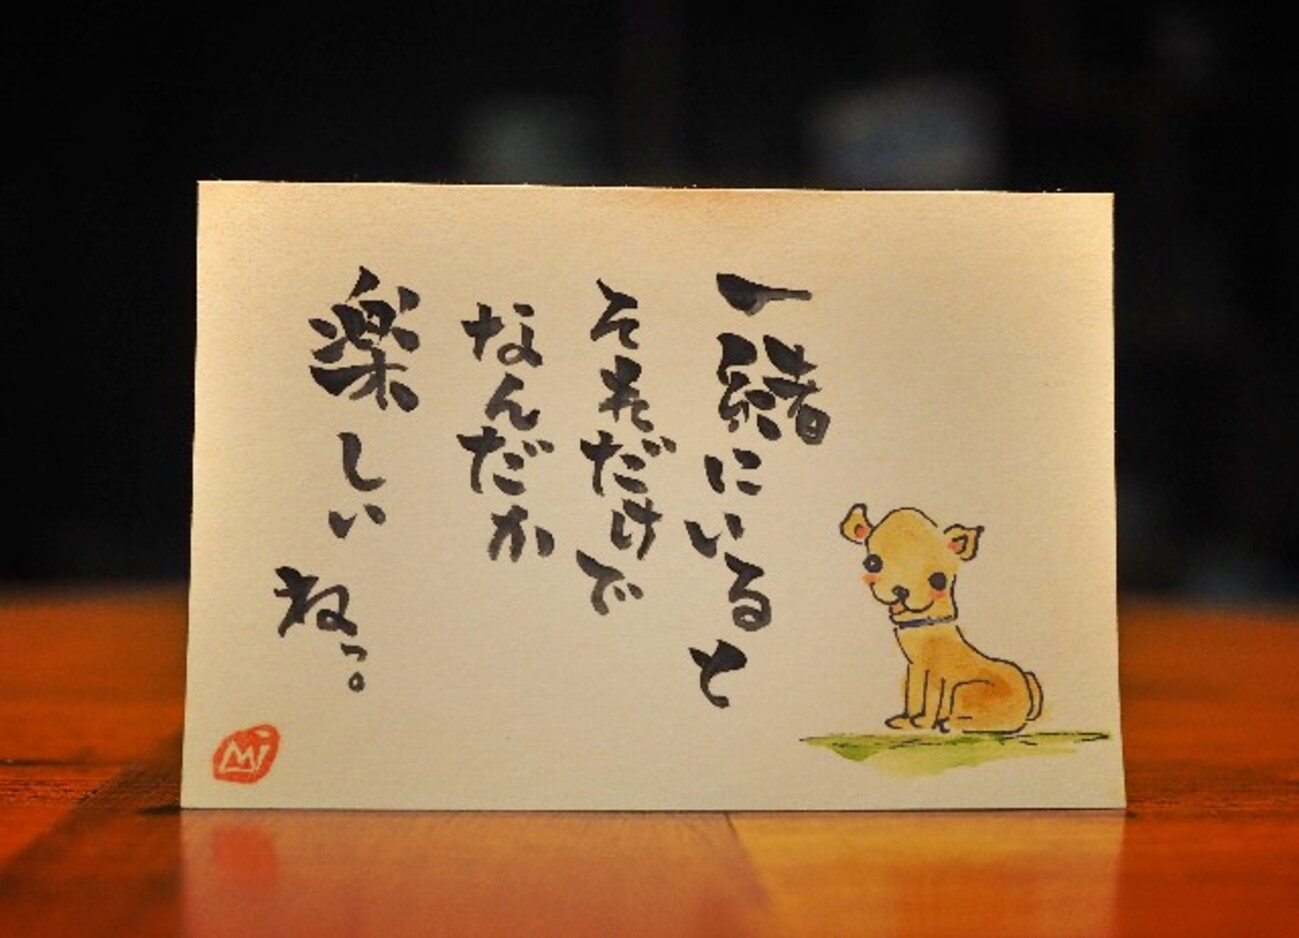 一緒にいると
それだけで
なんだか
楽しいねっ。
Mi